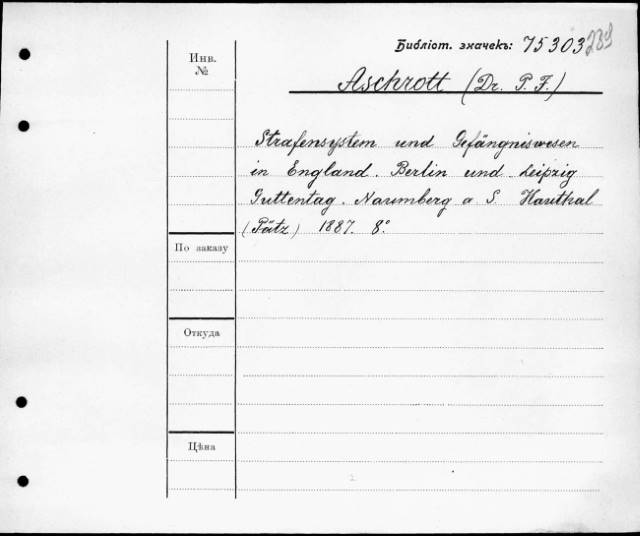 Библіот. значекъ: 75303 289
Инв.
№
Aschrott (Dr. P. F.)
Strafensystem und Gefängniswesen
in England. Berlin und Leipzig
Guttentag. Naumberg a. S. Hauthal
(Pätz) 1887. 8°.
По заказу
Откуда
Цѣна